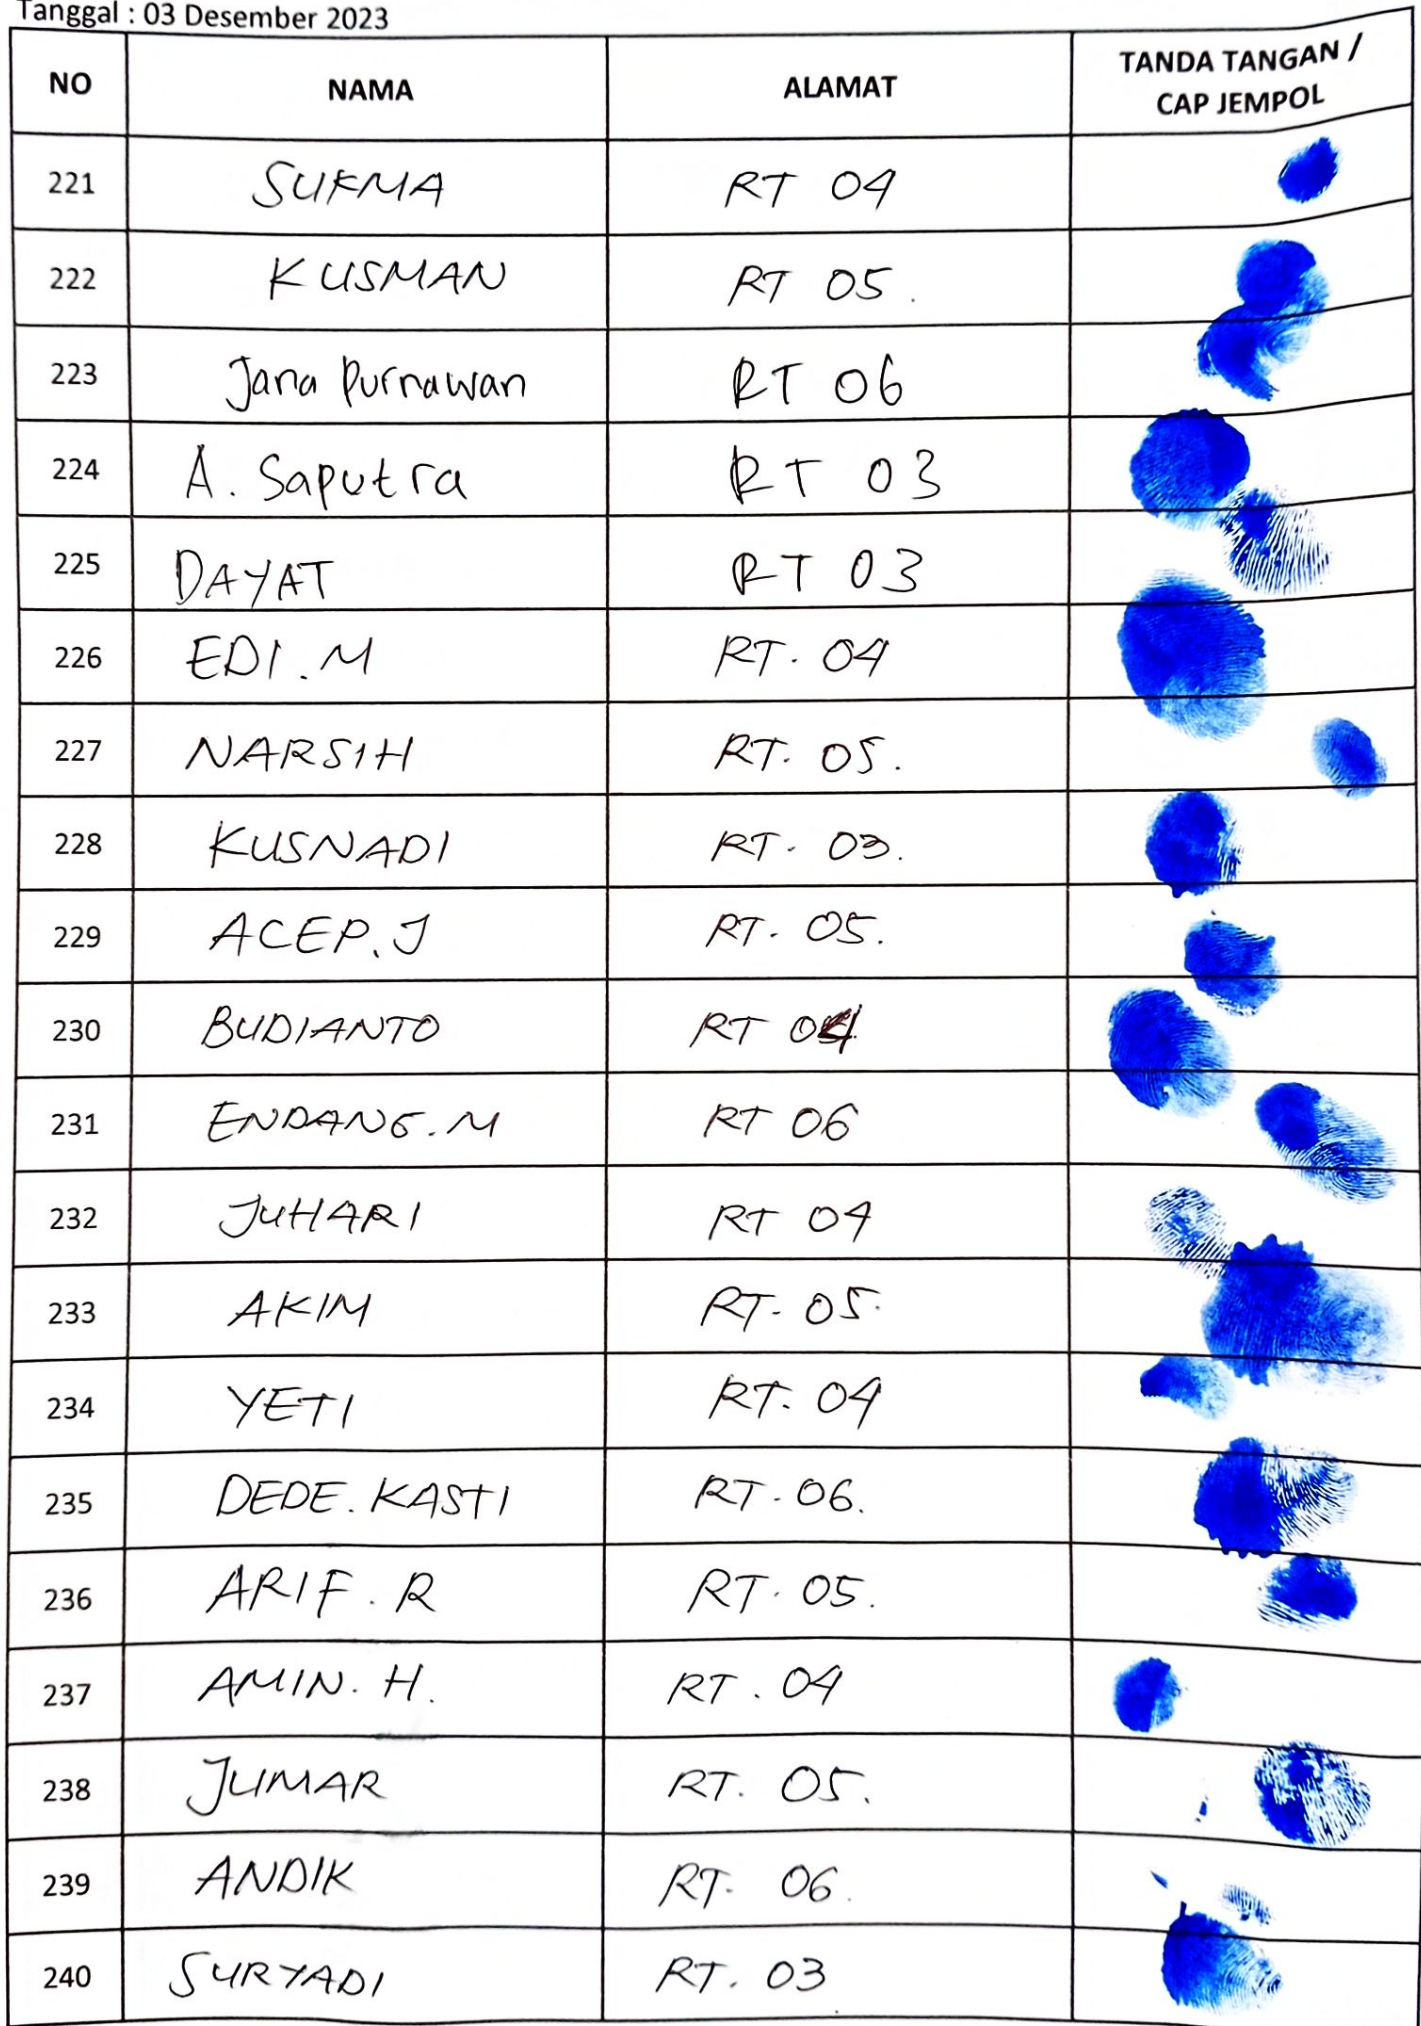 Tanggal : 03 Desember 2023
NO NAMA ALAMAT TANDA TANGAN / CAP JEMPOL
221 SUKMA RT 04
222 KUSMAN RT 05.
223 Jana Purnawan RT 06
224 A. Saputra RT 03
225 DAYAT RT 03
226 EDI.M RT. 04
227 NARSIH RT. 05.
228 KUSNADI RT. 03.
229 ACEP.J RT. 05.
230 BUDIANTO RT 04
231 ENDANG.M RT 06
232 JUHARI RT 04
233 AKIM RT. 05.
234 YETI RT. 04
235 DEDE.KASTI RT. 06.
236 ARIF.R RT. 05.
237 AMIN.H. RT. 04
238 JUMAR RT. 05.
239 ANDIK RT. 06.
240 SURYADI RT. 03